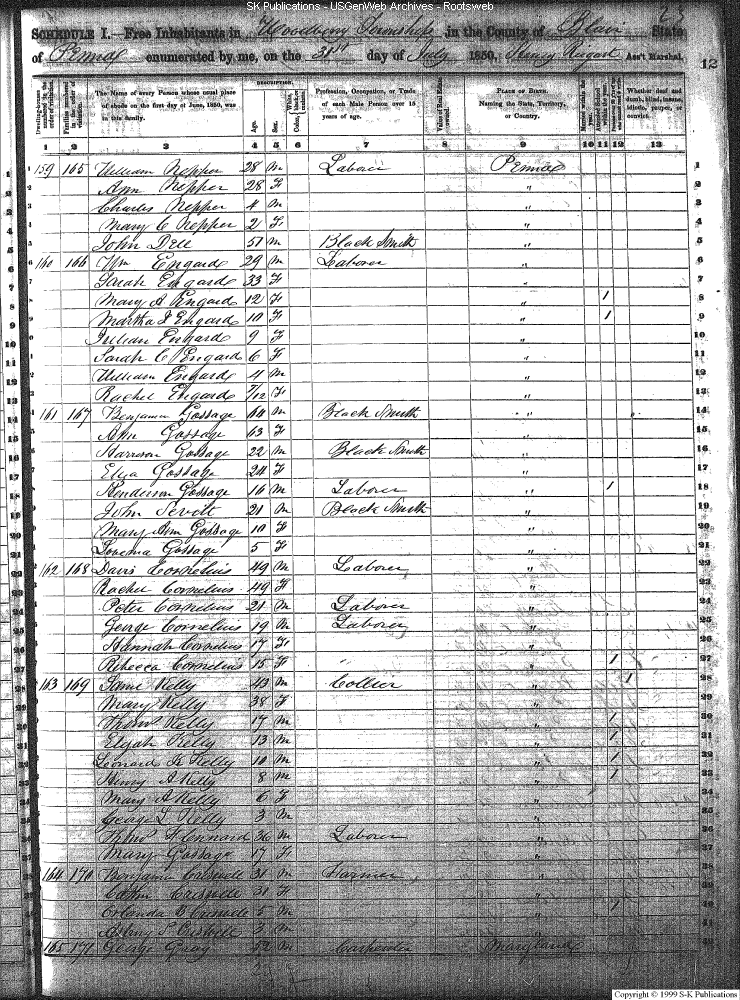 SK Publications - USGenWeb Archives - Rootsweb
23
SCHEDULE I.—Free Inhabitants in Woodberry Township in the County of Blair State
of Penna enumerated by me, on the 31st day of July 1850. Henry Ass't Marshal. 12
Dwelling-houses numbered in the order of visitation.
Families numbered in the order of visitation.
The Name of every Person whose usual place of abode on the first day of June, 1850, was in this family.
DESCRIPTION.
Age.
Sex.
Color, White, black, or mulatto.
Profession, Occupation, or Trade of each Male Person over 15 years of age.
Value of Real Estate owned.
PLACE OF BIRTH. Naming the State, Territory, or Country.
Married within the year.
Whether deaf and dumb, blind, insane, idiotic, pauper, or convict.
1 2 3 4 5 6 7 8 9 10 11 12 13
1 159 165 William Nepper 28 M Laborer Penna 1
2 Ann Nepper 28 F " 2
3 Charles Nepper 4 M " 3
4 Mary C Nepper 2 F " 4
5 John Dell 51 M Black Smith " 5
6 160 166 Wm Engard 29 M Laborer " 6
7 Sarah Engard 33 F " 7
8 Mary A Engard 12 F " 1 8
9 Martha J Engard 10 F " 1 9
10 Julian Engard 9 F " 10
11 Sarah C Engard 6 F " 11
12 William Engard 4 M " 12
13 Rachel Engard 7/12 F " 13
14 161 167 Benjamin Gossage 64 M Black Smith " 14
15 Ann Gossage 63 F " 15
16 Harrison Gossage 22 M Black Smith " 16
17 Eliza Gossage 24 F " 17
18 Henderson Gossage 16 M Laborer " 1 18
19 John 21 M Black Smith " 19
20 Mary Ann Gossage 10 F " 20
21 Gossage 5 F " 21
22 162 168 Davis Cornelius 49 M Laborer " 22
23 Rachel Cornelius 49 F " 23
24 Peter Cornelius 21 M Laborer " 24
25 George Cornelius 19 M Laborer " 25
26 Hannah Cornelius 17 F " 26
27 Rebecca Cornelius 15 F " " 1 27
28 163 169 Kelly 43 M Collier " 1 28
29 Mary Kelly 38 F " 29
30 Thos Kelly 17 M " 1 30
31 Elijah Kelly 13 M " 1 31
32 Leonard Kelly 10 M " 1 32
33 Henry A Kelly 8 M " 1 33
34 Mary A Kelly 6 F " 34
35 George Kelly 3 M " 35
36 36 M Laborer " 36
37 Mary Gossage 17 F " 37
38 164 170 Benjamin Criswell 31 M Farmer " 38
39 Criswell 31 F " 39
40 Criswell 5 M " 1 40
41 Criswell 3 M " 41
42 165 171 George Gray 52 M Carpenter Maryland 42
Copyright © 1999 S-K Publications